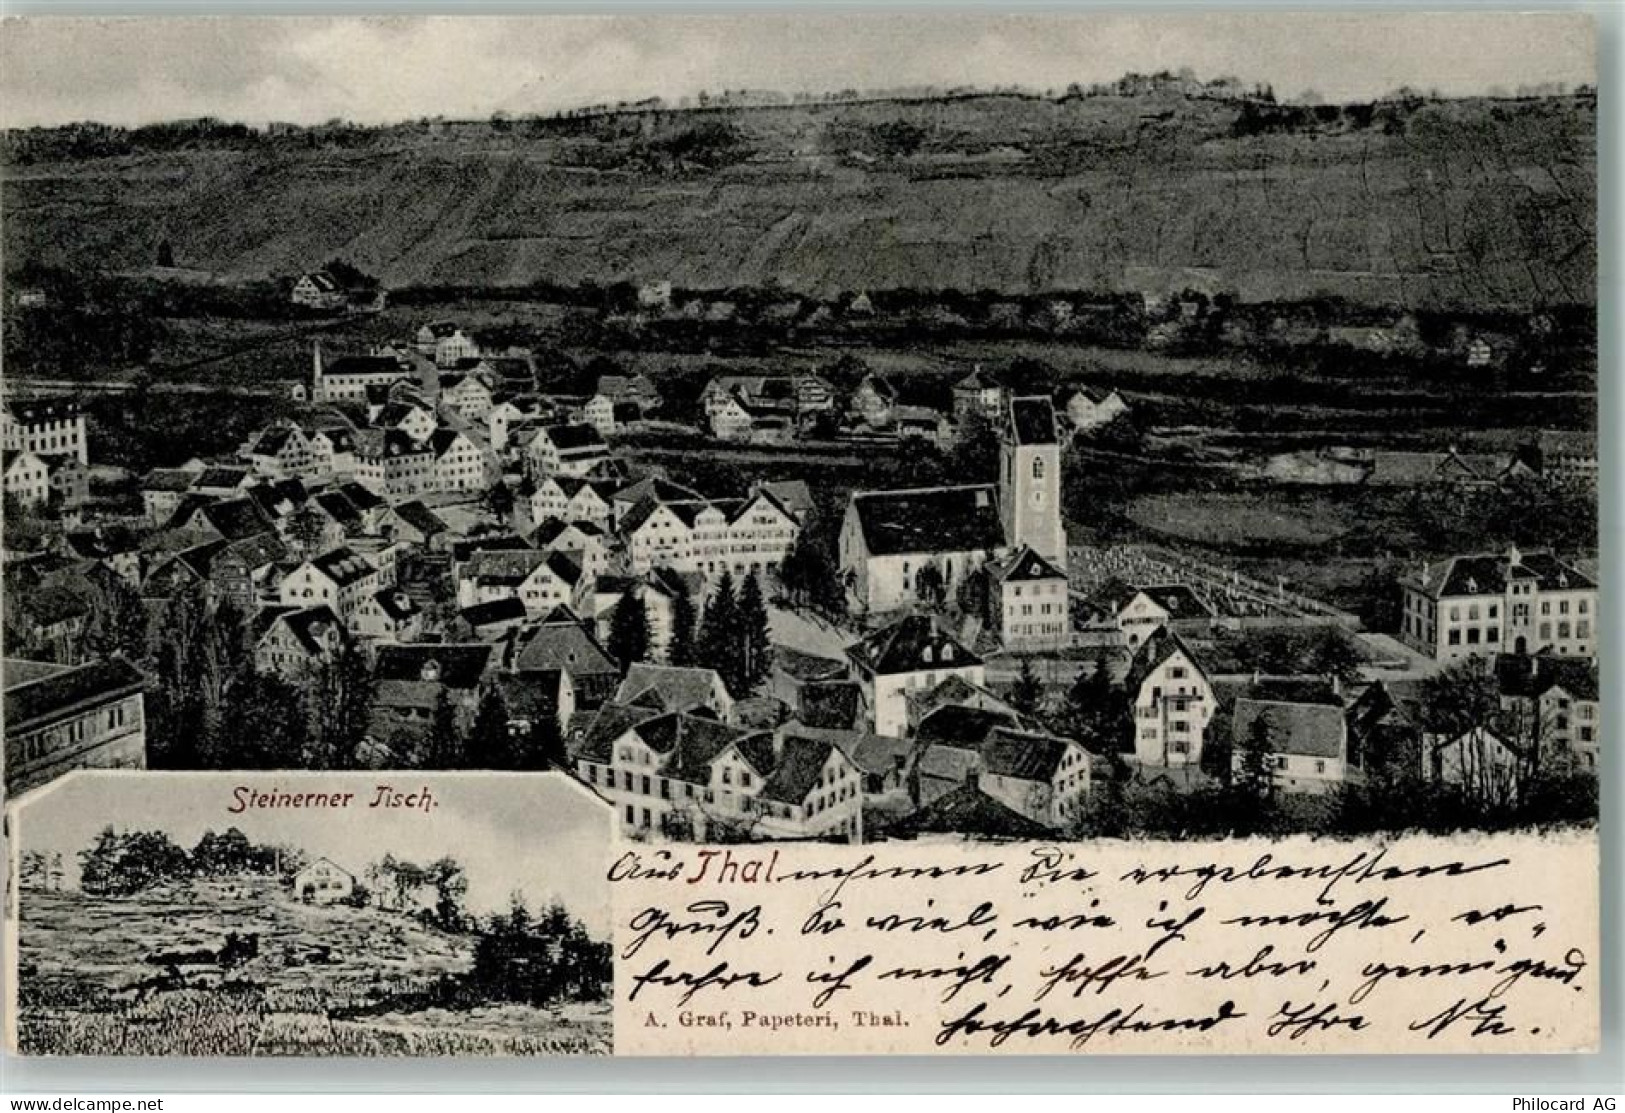 Steinerner Tisch.
Aus Thal nehmen Sie ergebensten
Gruß. So viel, wie ich möchte, er-
fahre ich nicht, hoffe aber, genügend.
A. Graf, Papeteri, Thal.
hochachtend Ihre
www.delcampe.net
Philocard AG